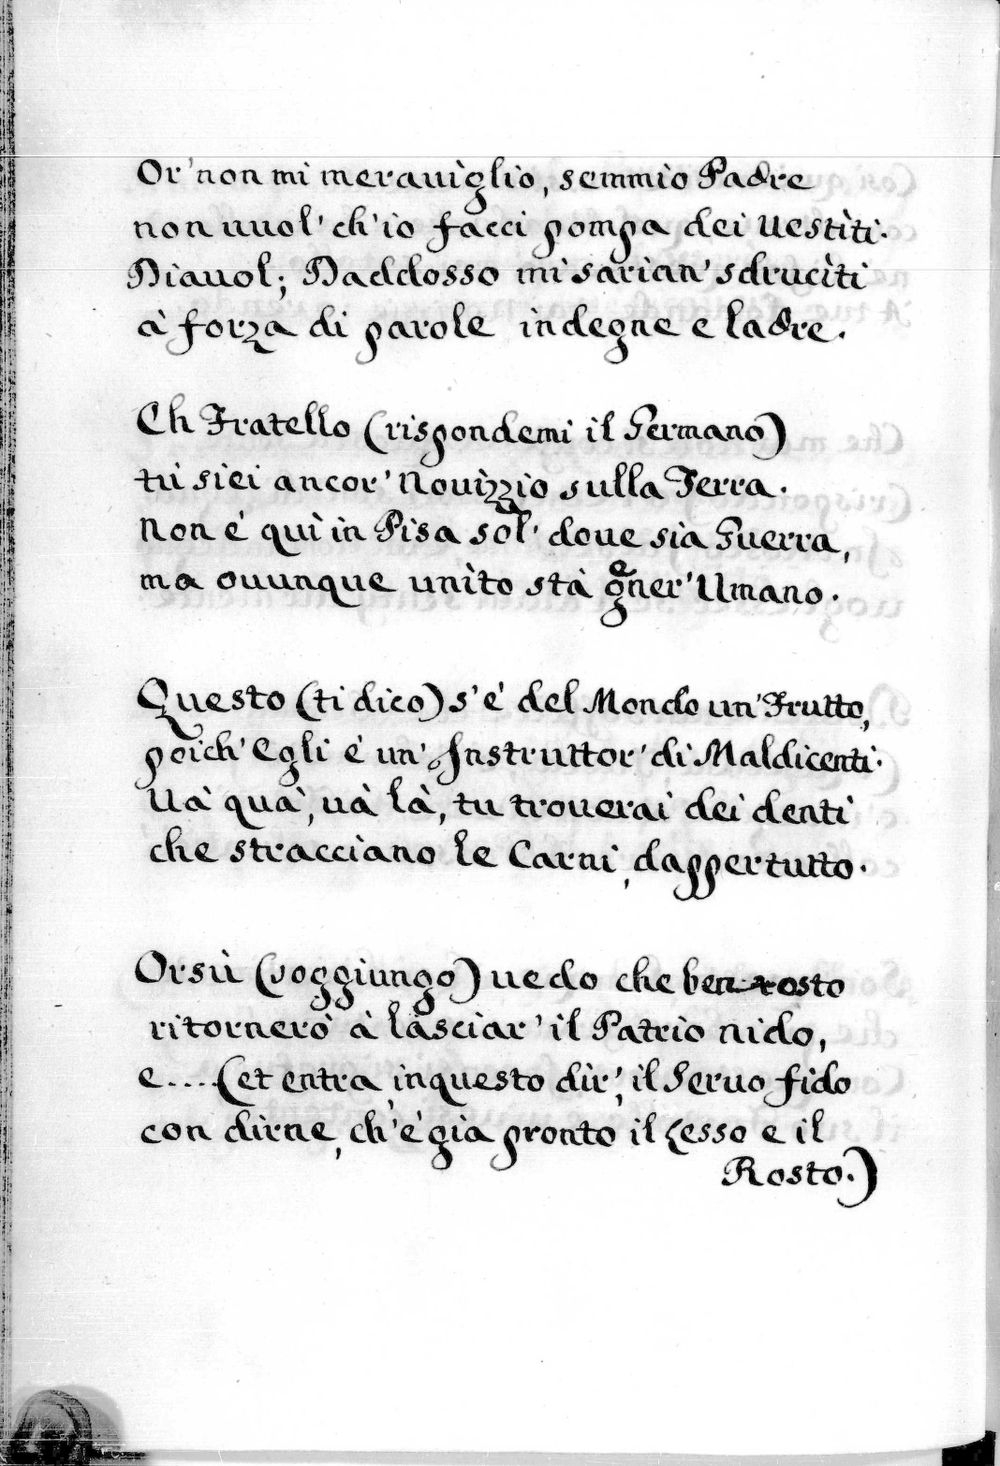 Or' non mi merauìglio, semmìo Padre
non uuol' ch'io facci pompa dei uestìti.
Diauol; Daddosso mi sarian' sdrucìti
à forza di parole indegne e ladre.
Eh Fratello (rispondemi il Germano)
tù siei ancor' Nouìzzio sulla Terra.
Non é quì in Pisa sol' doue sìa Guerra,
ma ouunque unìto stà gener' Umano.
Questo (ti dico) s'é del Mondo un' Frutto,
poich' Egli é un' Instruttor' di Maldicenti.
Uà quà, uà là, tu trouerai dei denti
che stracciano le Carni, dappertutto.
Orsù (soggiungo) uedo che ben tosto
ritornerò à lasciar' il Patrio nido,
e.... (et entra, inquesto dir', il Seruo fido
con dirne, ch'é gia pronto il Lesso e il
Rosto.)